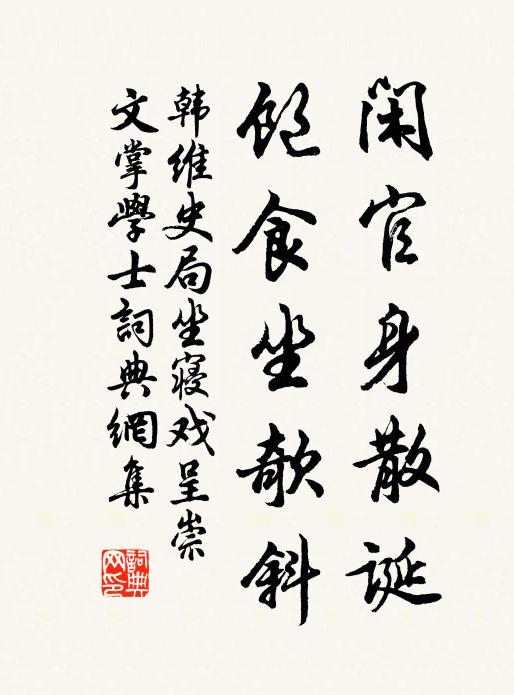 閑官身散誕
飽食坐欹斜
韩維史局坐寝戏呈崇
文掌學士詞典網集
詞典
网印